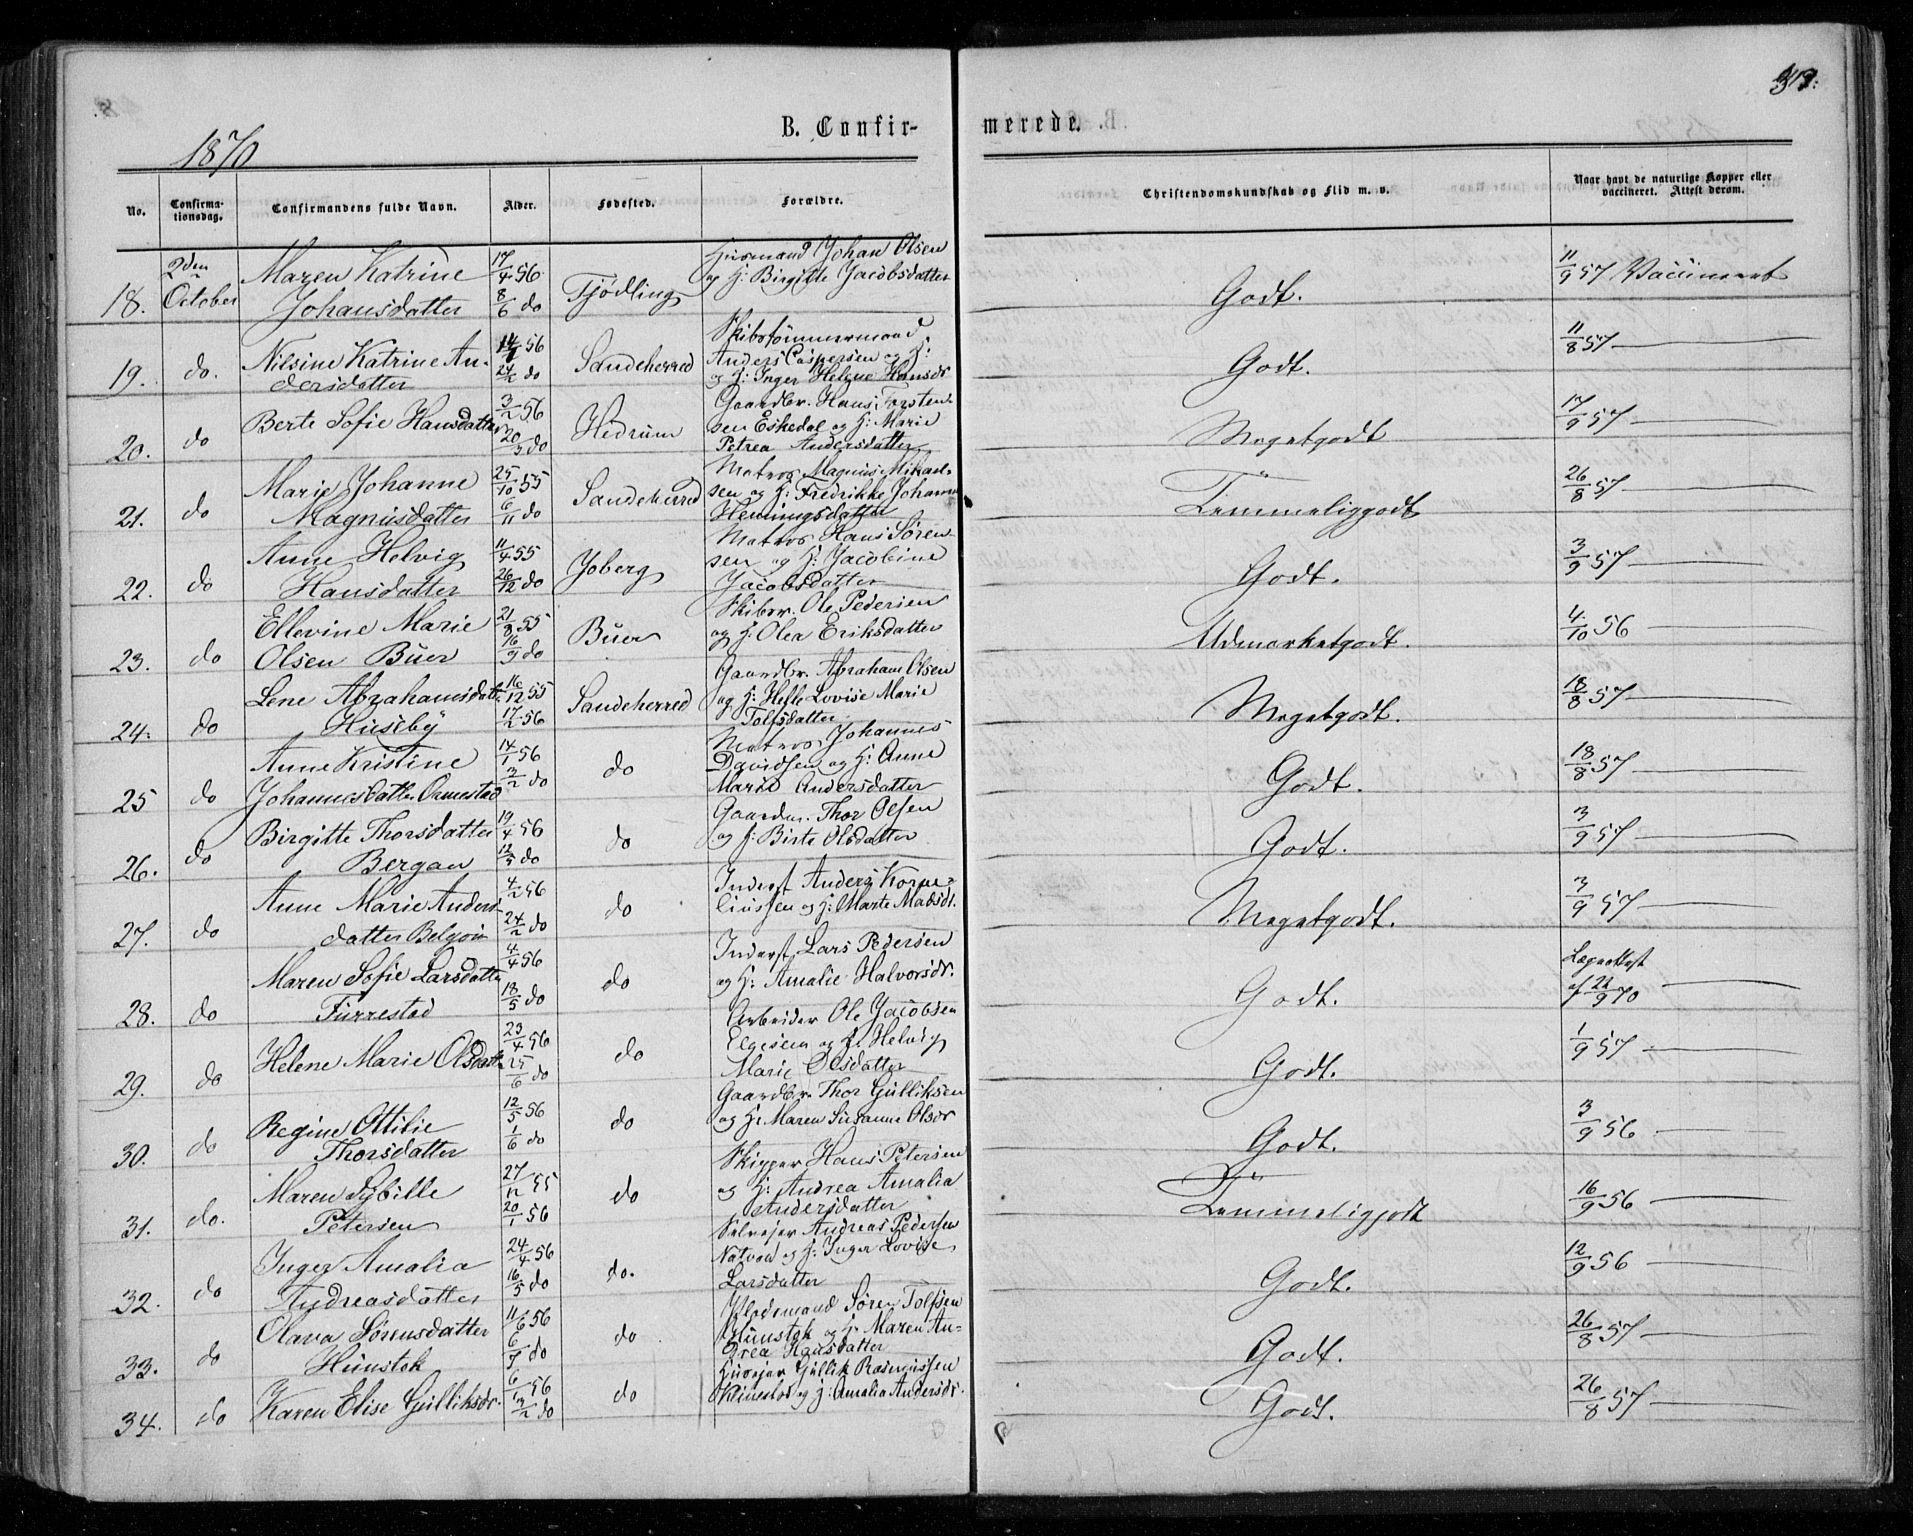 1870
B. Confirmerede.
No. Confirmationsdag. Confirmandens fulde Navn. Alder. Fødested. Forældre. Christendomskundskab og Flid m. v. Naar havt de naturlige Kopper eller vaccineret. Attest derom.
18. 2den October Maren Katrine Johansdatter 17/4 56 8/6 do Tjödling Husmand Johan Olsen og H: Birgitte Jacobsdatter Godt. 11/9 57 Vaccineret
19. do. Nilsine Katrine Andersdatter 56 24/2 do Sandeherred Skibstömmermand Anders Caspersen og H: og H: Inger Helene Hansdr Godt. 11/8 57
20. do Berte Sofie Hansdatter 3/2 56 20/3 do Hedrum Gaardbr. Hans Torstensen Eskedal og H: Marie Petrea Andersdatter Megetgodt 17/9 57
21. do Marie Johanne Magnusdatter 25/10 55 6/11 do Sandeherred Matros Magnus Mikaelsen og H: Fredrikke Johanne Henningsdatter Temmeliggodt 26/8 57
22. do Anne Helvig Hansdatter 11/4 55 26/12 do Joberg Matros Hans Sörensen og H: Jacobine Jacobsdatter Godt. 3/9 57
23. do Ellevine Marie Olsen Buer 21/8 55 16/9 do Buer Skibsr. Ole Pedersen og H: Olea Eriksdatter Udmærketgodt. 4/10 56
24. do Lene Abrahamsdatter Huseby 16/12 55 17/2 56 Sandeherred Gaardbr. Abraham Olsen og H: Helle Lovise Marie Tolfsdatter Megetgodt. 18/8 57
25 do Anne Kristine Johannesdatter Ormestad 14/1 56 3/2 do do Matros Johannes Davidsen og H: Anne Marie Andersdatter Godt. 18/8 57
26. do Birgitte Thorsdatter Bergan 19/4 56 12/5 do do Gaardm. Thor Olsen og H: Birte Olsdatter Godt. 3/9 57
27. do Anne Marie Andersdatter 4/2 56 24/2 do do Inderst Anders Korneliussen og H: Marte Mabsdr. Megetgodt. 3/9 57
28. do Maren Sofie Larsdatter Furrestad 4/4 56 18/5 do do Inderst Lars Pedersen og H: Amalie Halvorsdr. Godt. Lægeattest af 22/9 70
29. do Helene Marie Olsdatter 23/4 56 25/6 do do Arbeider Ole Jacobsen Elgesem og H: Helvig Marie Olsdatter Godt. 1/9 57
30. do Regine Ottilie Thorsdatter 12/5 56 1/6 do do Gaardbr. Thor Gulliksen og H: Maren Susanne Olsdr Godt. 3/9 56
31. do. Maren Sybille Petersen 27/12 55 20/1 56 do Skipper Hans Petersen og H: Andrea Amalia Andersdatter Temmeliggodt 16/9 56
32. do Inger Amalia Andreasdatter 24/4 56 16/5 do do. Selvejer Andreas Pedersen og H: Inger Lovise Larsdatter Godt. 12/9 56
33. do Olava Sörensdatter Hunstok 11/6 56 6/7 do do Sören Tolfsen Hunstok og H: Maren Andrea Hansdatter Godt. 26/8 57
34. do Karen Elise Gulliksdr. 6/1 56 3/2 do do Gullik Rasmussen Skinestad og H: Amalia Andersdr. Godt. 26/8 57